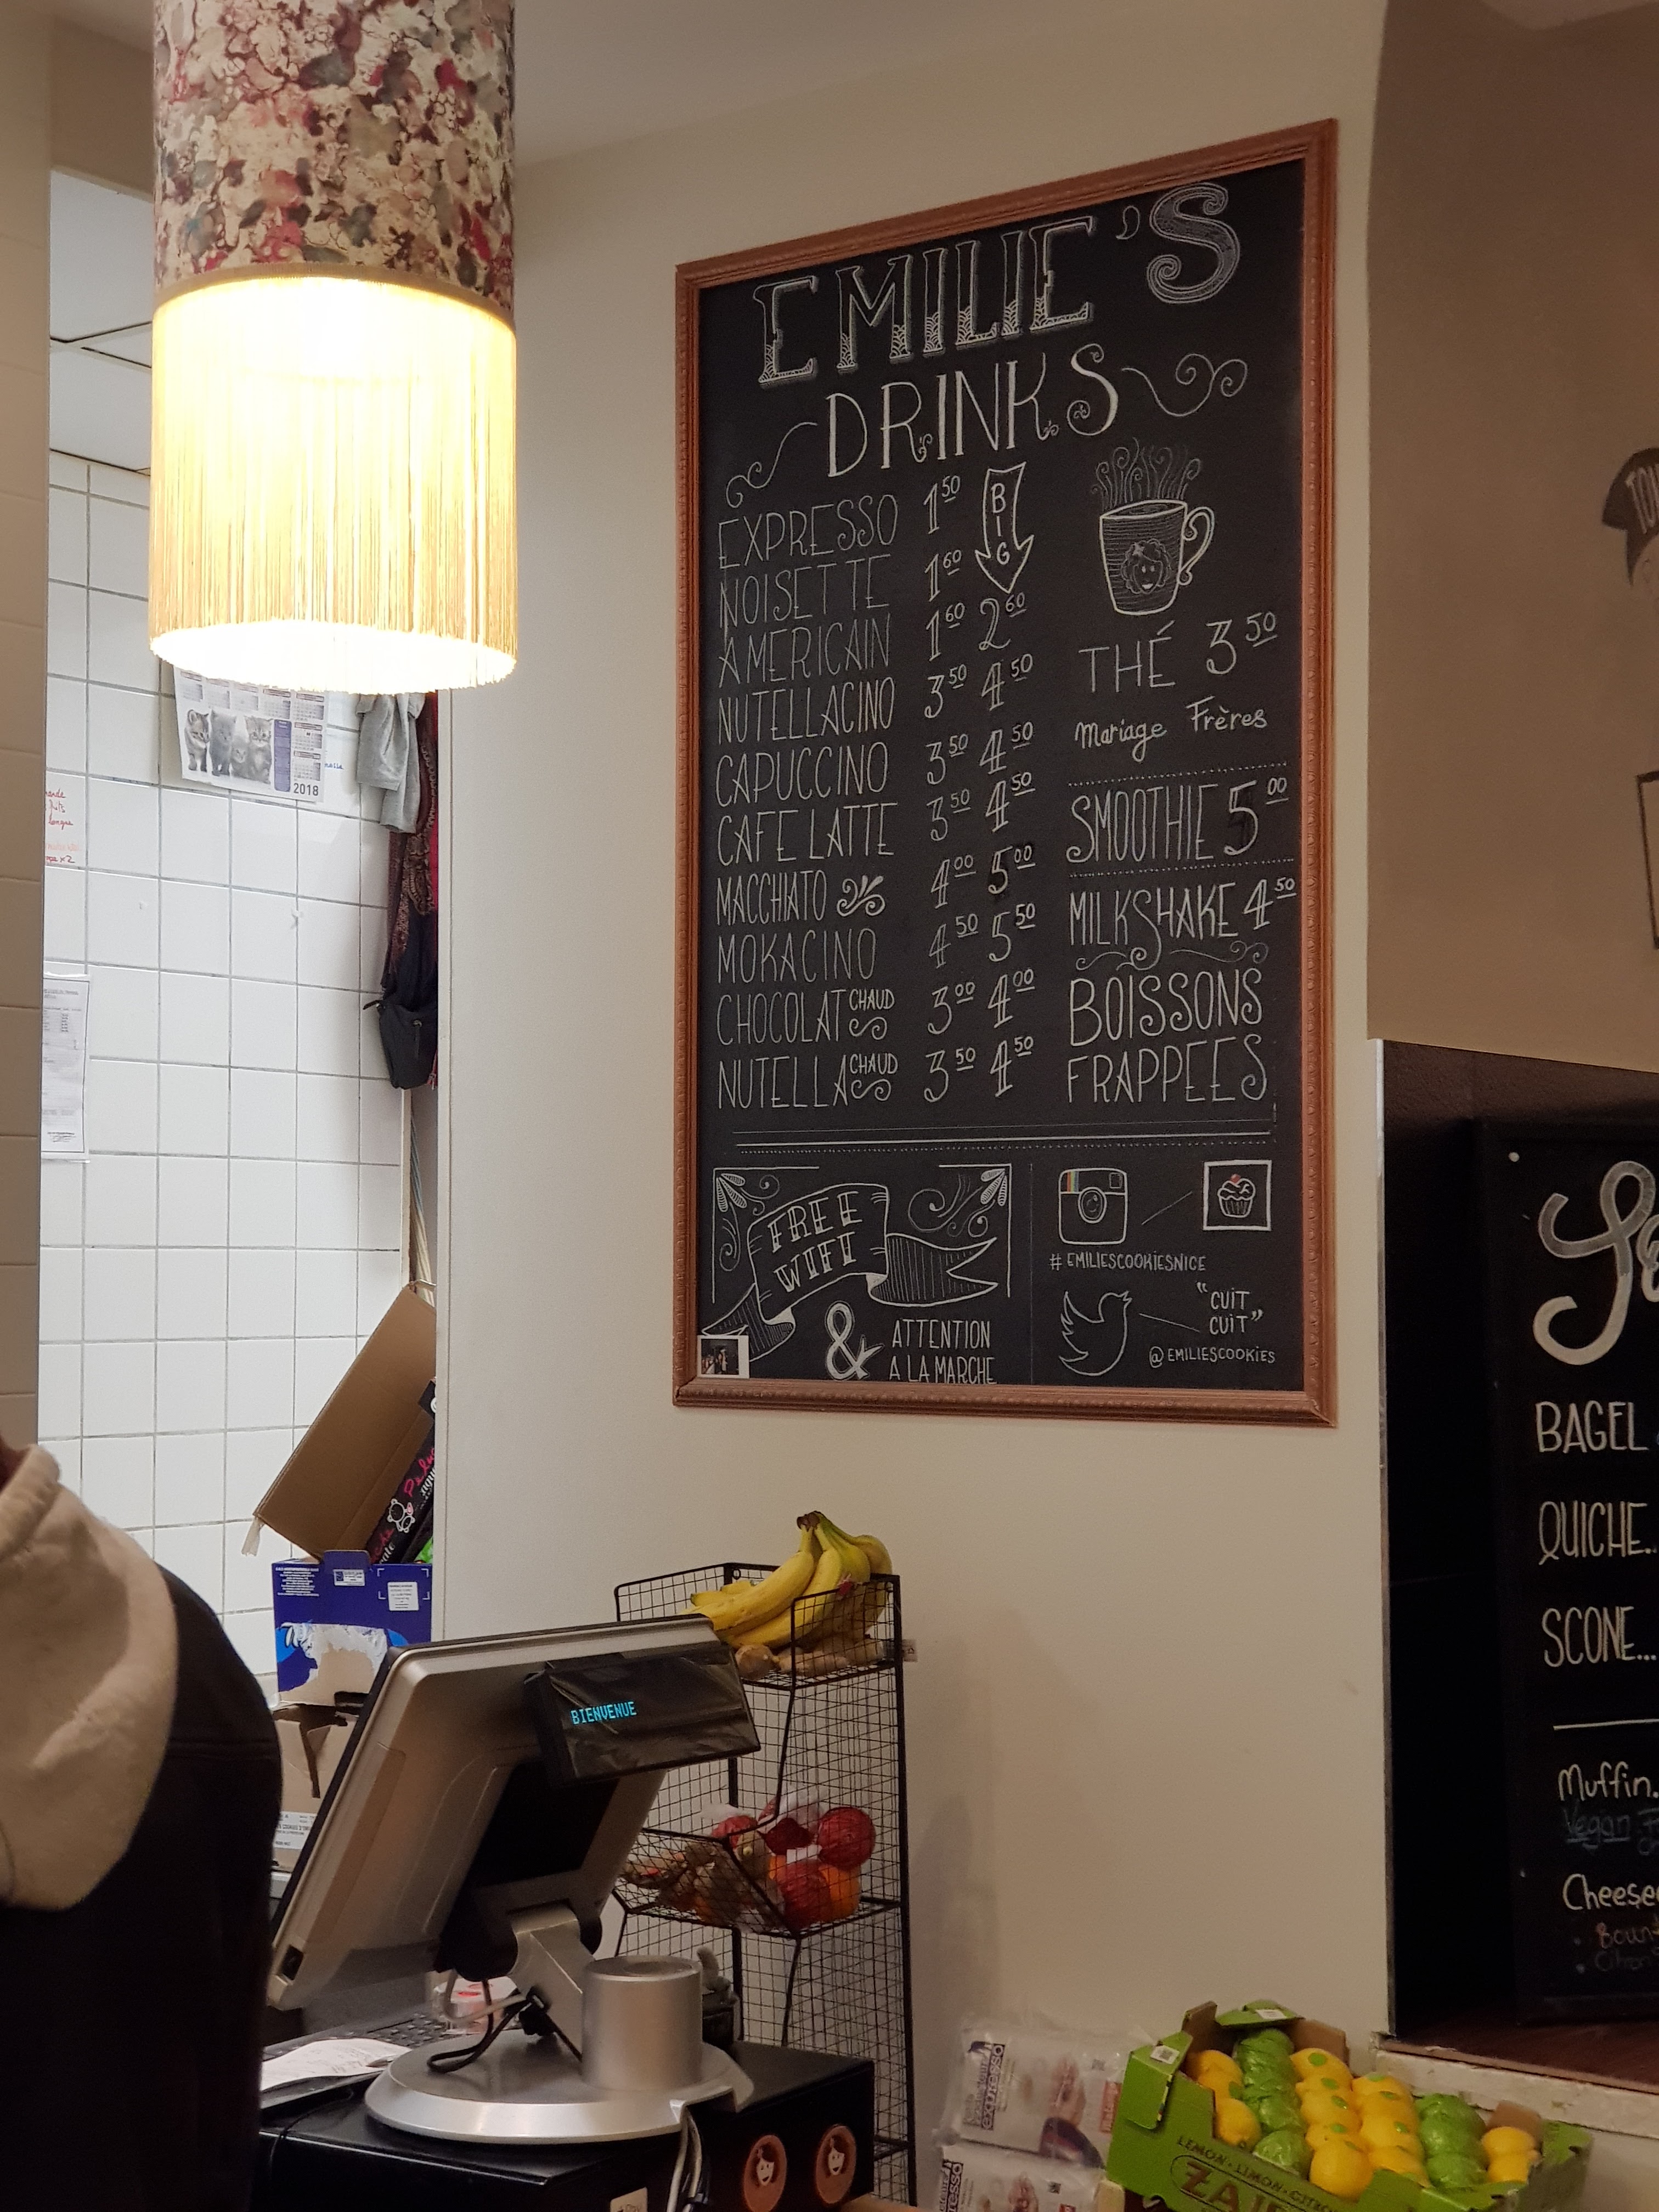 EMILIE'S
DRINKS
BIG
EXPRESSO 1 50
NOISETTE 1 60
AMERICAIN 1 60 2 60
NUTELLACINO 3 50 4 50
CAPUCCINO 3 50 4 50
CAFE LATTE 3 50 4 50
MACCHIATO 4 00 5 00
MOKACINO 4 50 5 50
CHOCOLAT CHAUD 3 00 4 00
NUTELLA CHAUD 3 50 4 50
THÉ 3 50
Mariage Frères
SMOOTHIE 5 00
MILKSHAKE 4 50
BOISSONS
FRAPPEES
FREE
WIFI
& ATTENTION
A LA MARCHE
#EMILIESCOOKIESNICE
"CUIT
CUIT"
@EMILIESCOOKIES
2018
BAGEL
QUICHE..
SCONE...
Muffin.
Vegan
BIENVENUE
expresso
LEMON · LIMON · CITRON